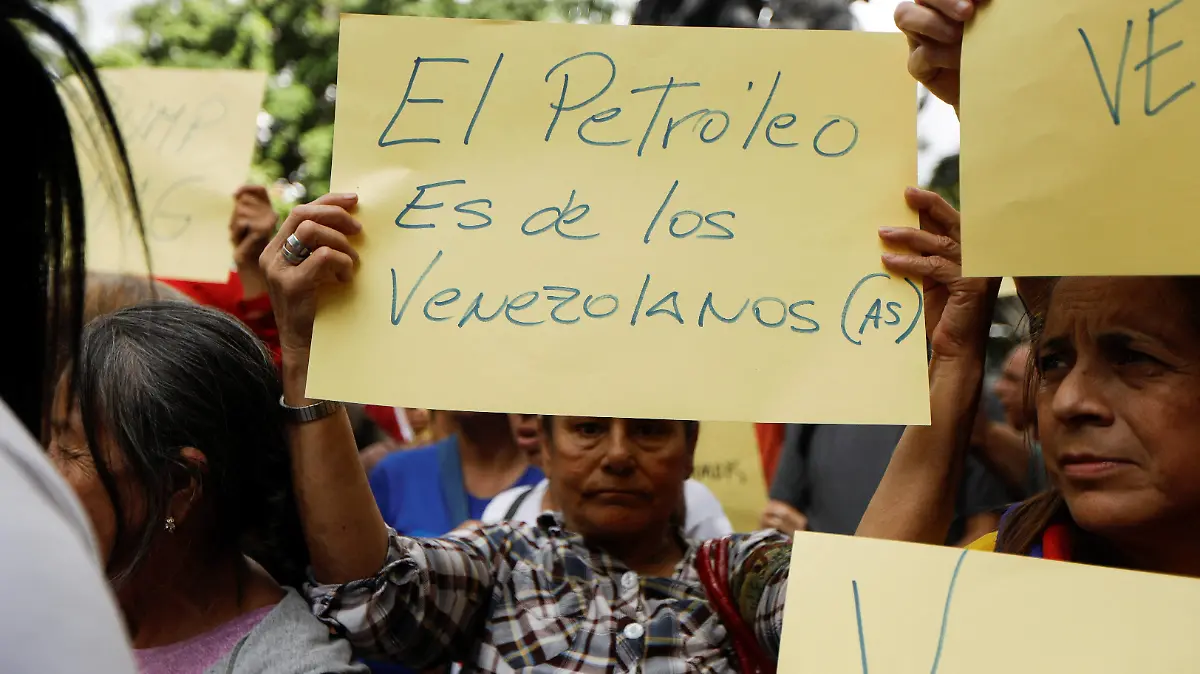 El Petróleo
Es de los
Venezolanos (AS)
VE
V